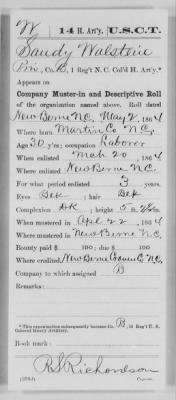 W 14 H. Art'y. U.S.C.T.
Sandy Walstein
Priv., Co. B, 1 Reg't N. C. Col'd H. Art'y.*
Appears on
Company Muster-in and Descriptive Roll
of the organization named above. Roll dated
New Berne N.C., May 2, 1864
Where born Martin Co N.C.
Age 30 y'rs; occupation Laborer
When enlisted Mch 20, 1864
Where enlisted New Berne N.C.
For what period enlisted 3 years.
Eyes Dk; hair Dk
Complexion Dk; height 5 ft. in.
When mustered in Apl 22, 1864
Where mustered in New Berne N.C.
Bounty paid $ 100; due $ 100
Where credited New Berne Craven Co N.C.
Company to which assigned B
Remarks:
*This organization subsequently became Co. B, 14 Reg't U. S.
Colored Heavy Artillery.
Book mark:
R S Richardson
Copyist.